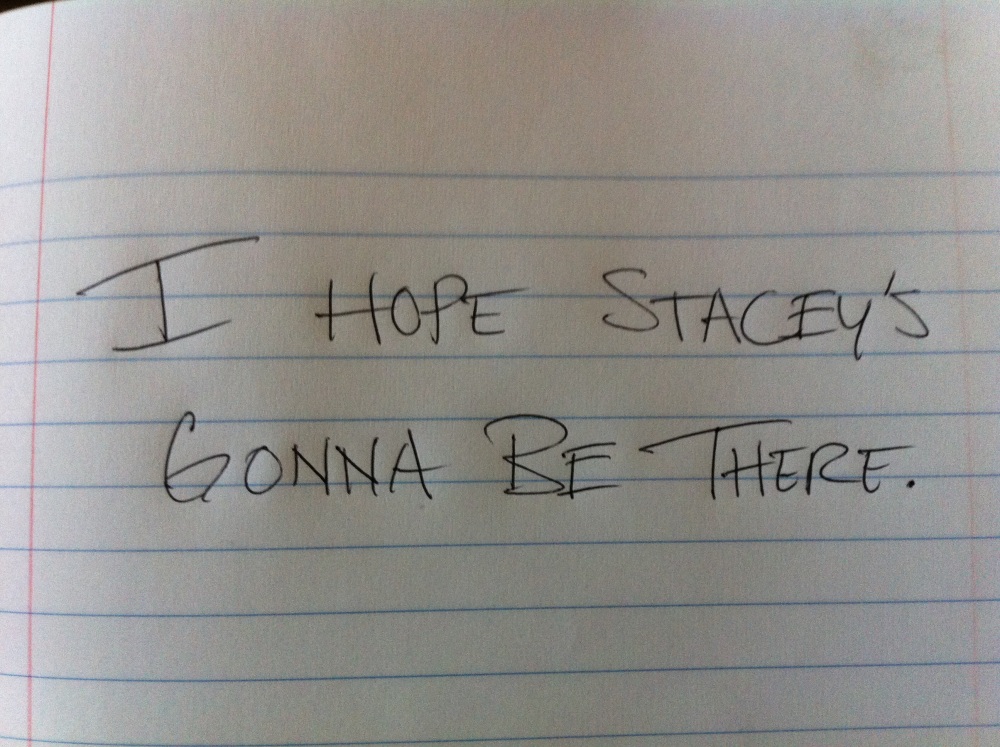 I HOPE STACEY'S
GONNA BE THERE.